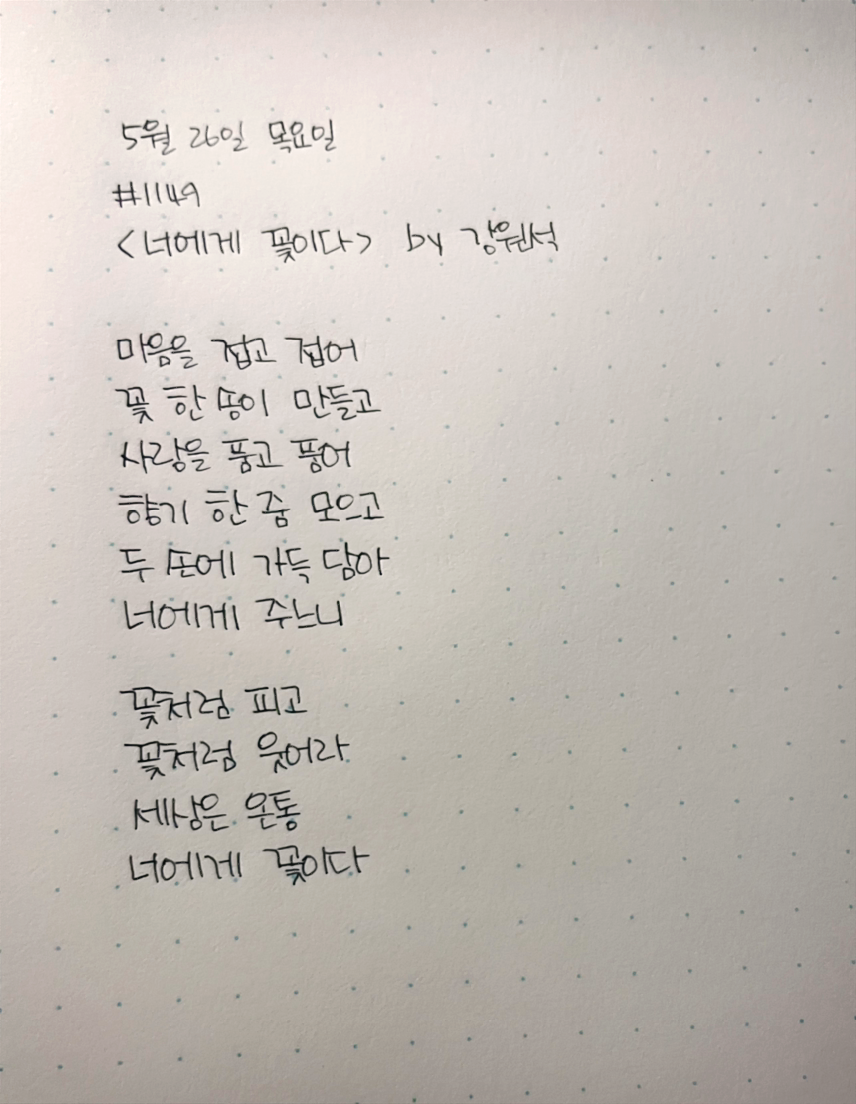 5월 26일 목요일
#1149
<너에게 꽃이다> by 강원석
마음을 접고 접어
꽃 한 송이 만들고
사랑을 품고 품어
향기 한 줌 모으고
두 손에 가득 담아
너에게 주느니
꽃처럼 피고
꽃처럼 웃어라
세상은 온통
너에게 꽃이다